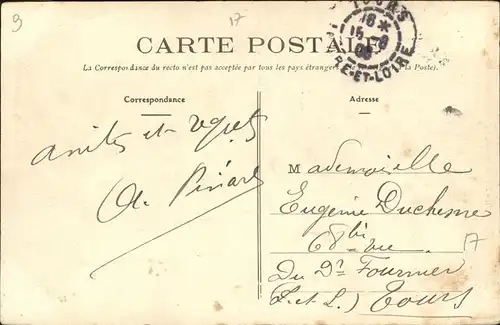 9
17
TOURS
16 *
15 - 8
RE-ET-LOIRE
CARTE POSTALE
La Correspondance du recto n'est pas acceptée par tous les pays étranger la Poste).
Correspondance
Adresse
amités et
A. Pinard
Mademoiselle
Eugénie Duchesne
68 bis rue
17
Du Dr Fournier
(I. et L.) Tours